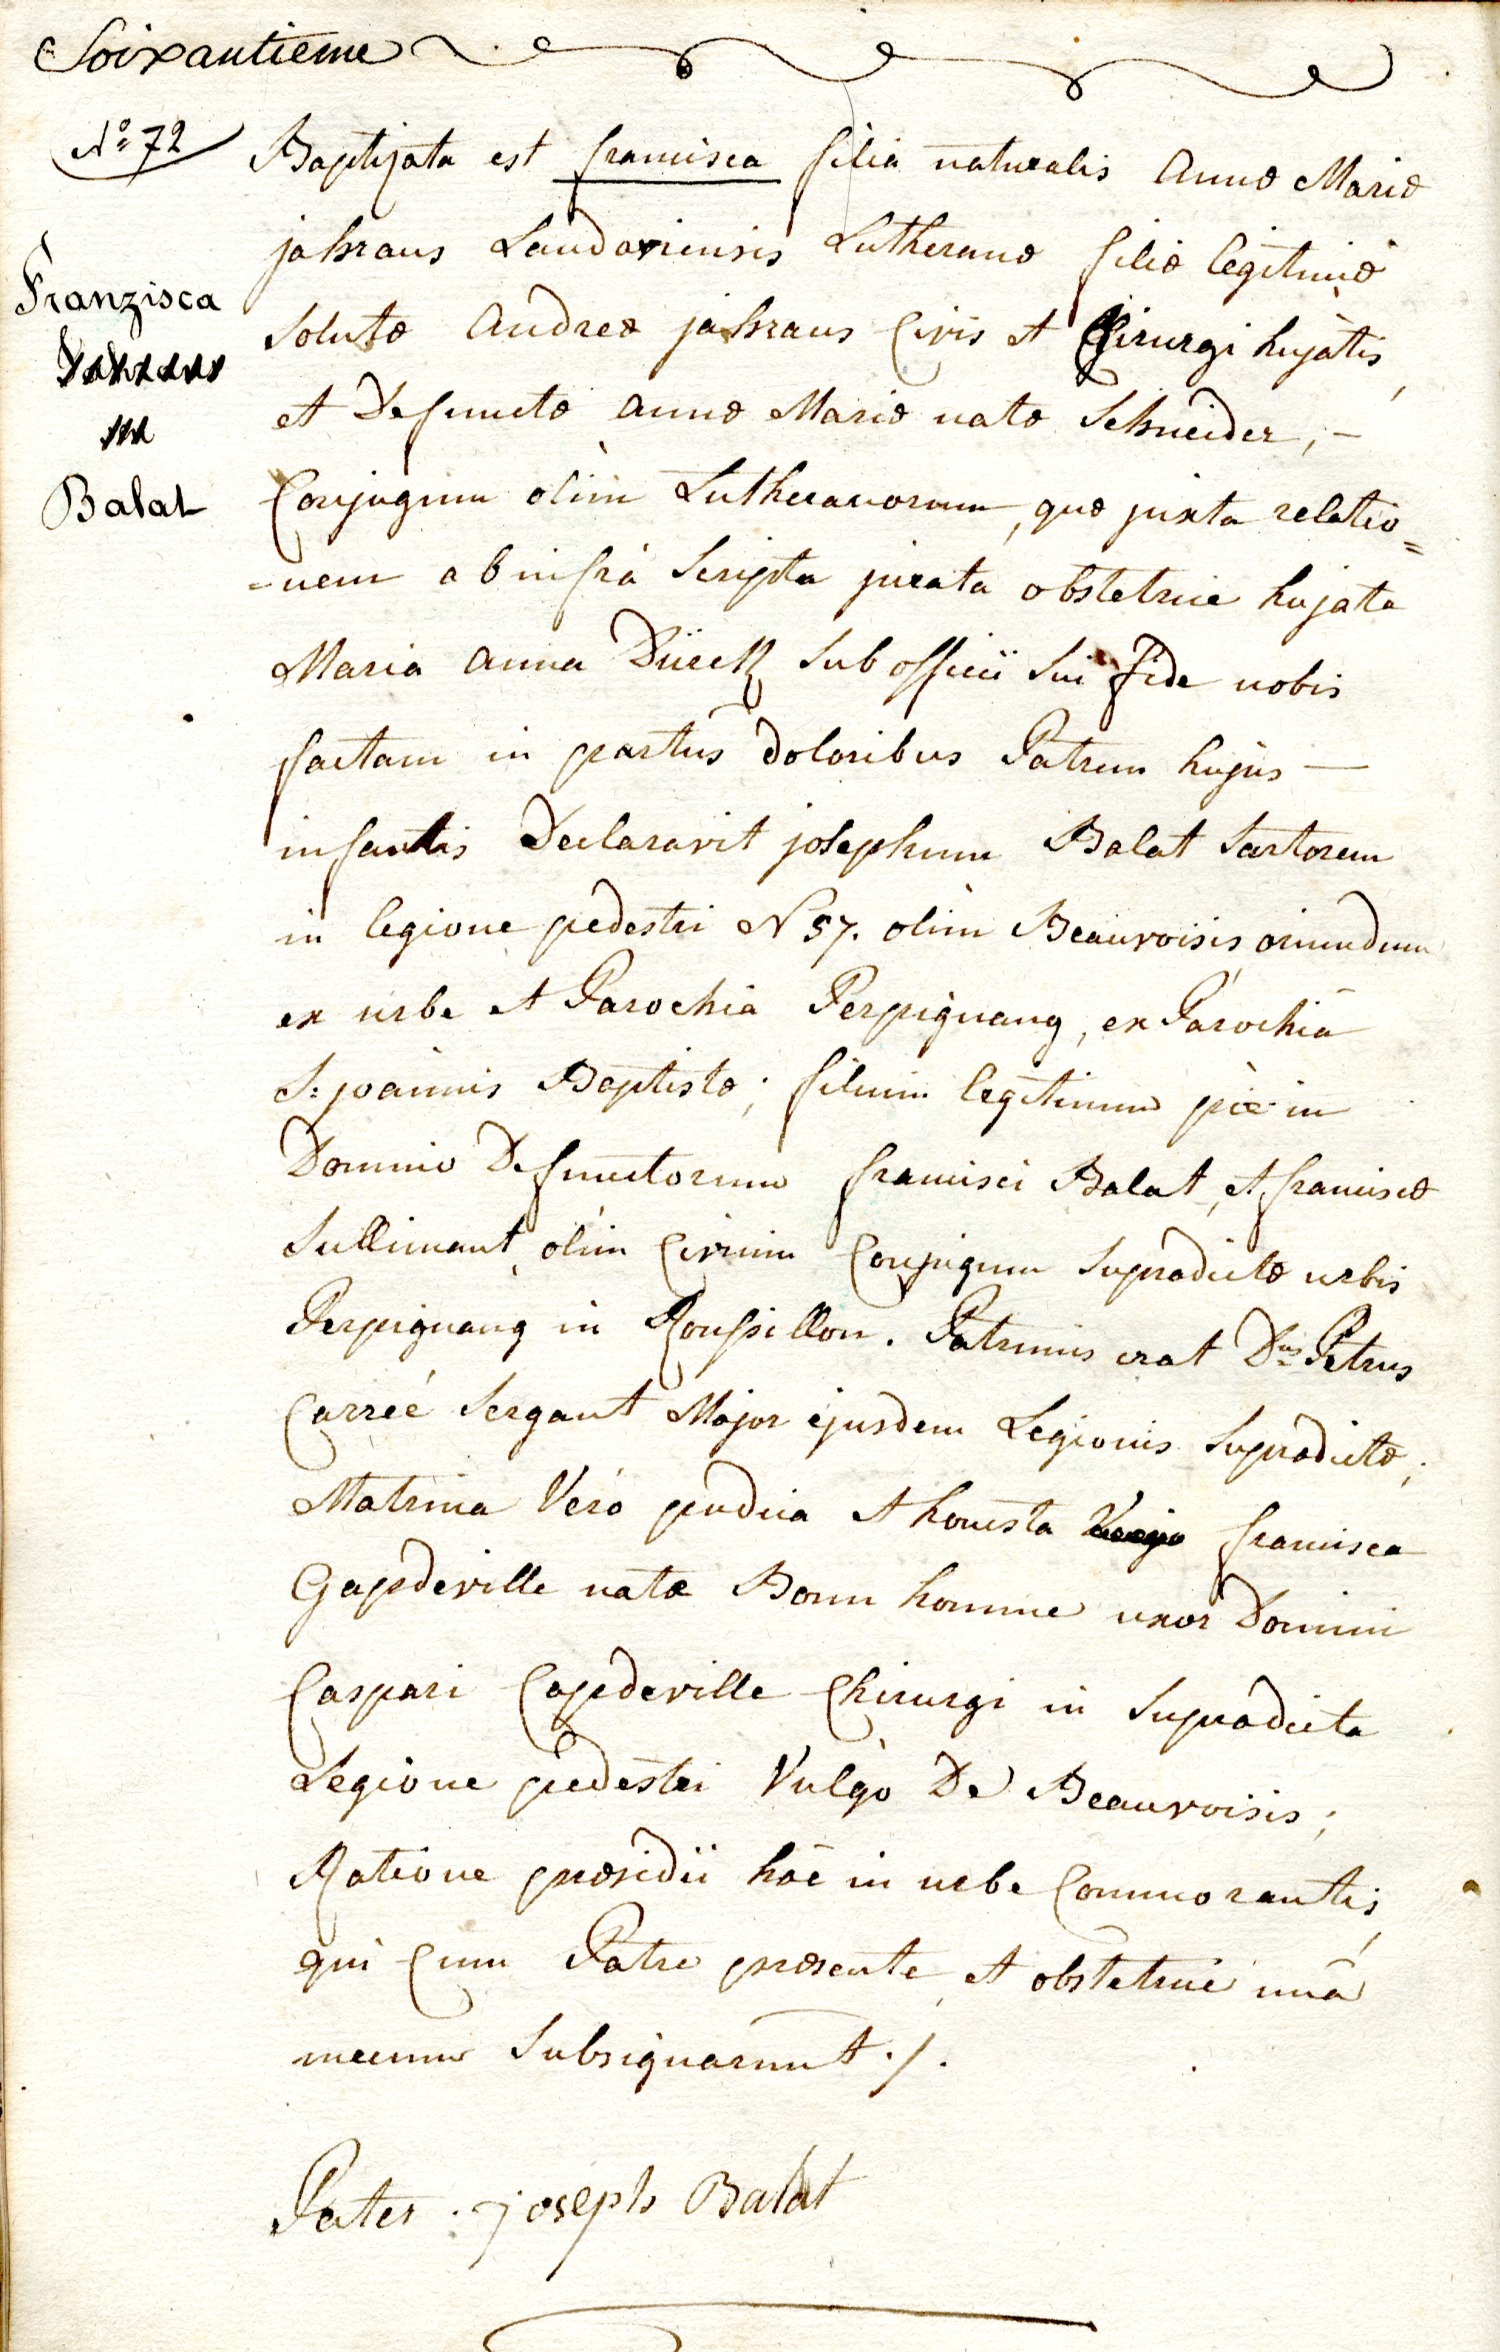 Soixantieme
N° 72
Baptizata est francisca filia naturalis Annæ Mariæ
jahraus Landaviensis Lutheranæ filiæ legitimæ
solutæ Andreæ jahraus Civis et Chirurgi hujatis,
et Defunctæ Annæ Mariæ natæ Schneider, –
Franzisca
Balat
Conjugum olim Lutheranorum, quæ juxta relatio=
=nem ab infrà Scripta jurata obstetrice hujata
Maria Anna Dürck sub officii sui Fide nobis
factam in partus doloribus Patrem hujus —
infantis Declaravit josephum Balat Sartorem
in legione pedestri N 57. olim Beauvoisis oriundum
ex urbe et Parochia Perpignang, ex Parochiâ
S: joannis Baptistæ; filium legitimum piè in
Domino Defunctorum francisci Balat, et franciscæ
Sullimant, olim Civium Conjugum supradictæ urbis
Perpignang in Roussillon. Patrinus erat Dnus Petrus
Carreé Sergant Major ejusdem Legionis supradictæ;
Matrina Verò pudica et honesta francisca
Gapdeville natæ Bonn homme uxor Domini
Caspari Capdeville Chirurgi in supradicta
Legione pedestri Vulgò De Beauvoisis;
Ratione præsidii hâc in urbe Commorantis,
qui Cum Patre præsente, et obstetrice unâ
mecum Subsignarunt ./.
Pater . joseph Balat